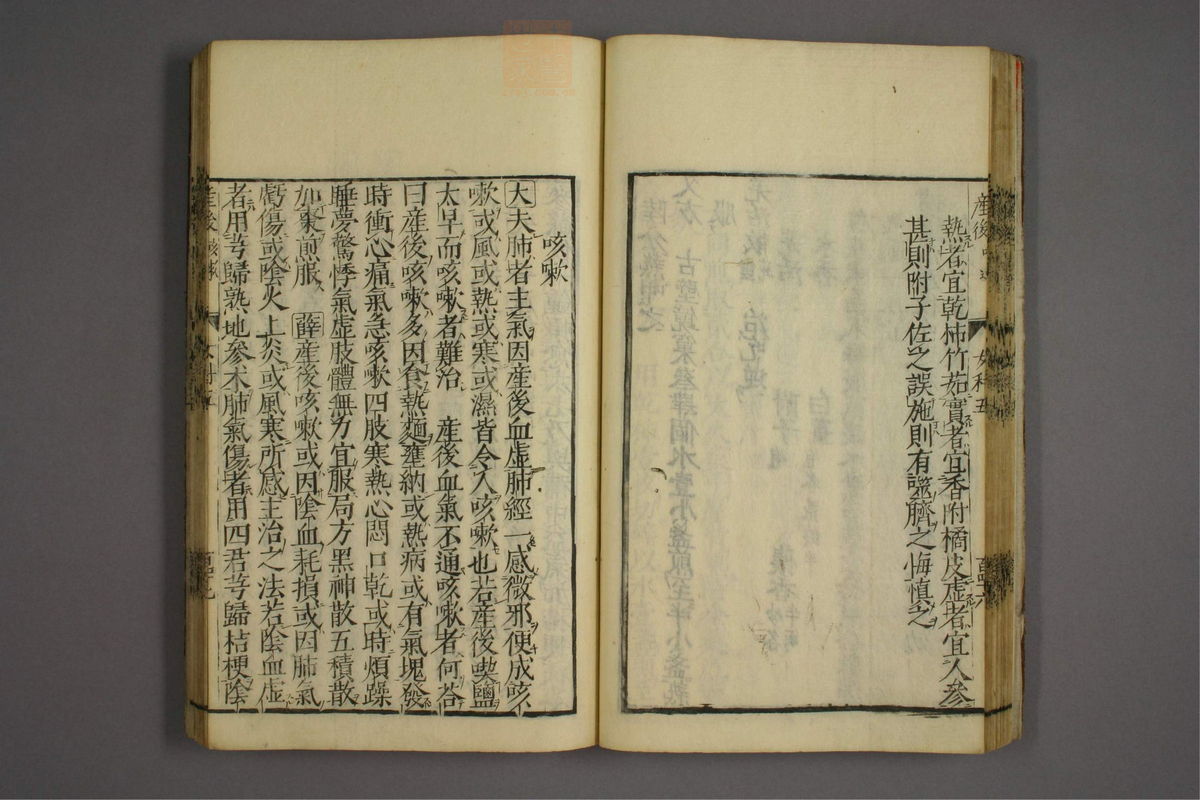 產後
女科五
熱者宜乾柿竹茹實者宜香附橘皮虛者宜人參
甚則附子佐之誤施則有噬臍之悔慎之
咳嗽
大夫肺者主氣因產後血虛肺經一感微邪便成咳
嗽或風或熱或寒或濕皆令人咳嗽也若產後喫鹽
太早而咳嗽者難治　產後血氣不通咳嗽者何答
曰產後咳嗽多因食熱麵壅納或熱病或有氣塊發
時衝心痛氣急咳嗽四肢寒熱心悶口乾或時煩躁
睡夢驚悸氣虛肢體無力宜服局方黑神散五積散
加棗煎服　薛產後咳嗽或因陰血耗損或因肺氣
虧傷或陰火上炎或風寒所感主治之法若陰血虛
者用芎歸熟地參朮肺氣傷者用四君芎歸桔梗陰
產後